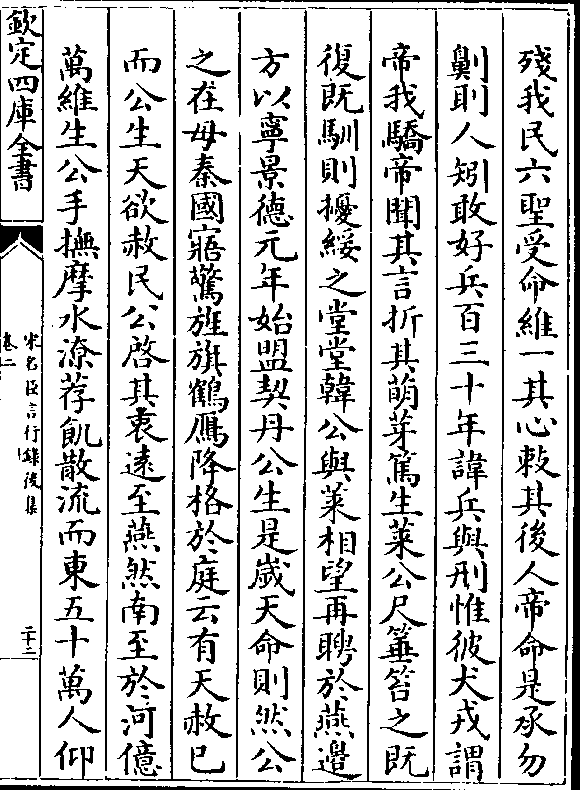 殘我民六聖受命維一其心敕其後人帝命是承勿
劓刵人矧敢好兵百三十年諱兵與刑惟彼犬戎謂
帝我驕帝聞其言折其萌芽篤生萊公尺箠笞之既
復既馴則擾綏之堂堂韓公與萊相望再聘於燕邉
方以寧景德元年始盟契丹公生是嵗天命則然公
之在母秦國寤驚旌旗鶴鴈降格於庭云有天赦已
而公生天欲赦民公啓其衷遠至燕然南至於河億
萬維生公手撫摩水潦荐飢散流而東五十萬人仰
欽定四庫全書
宋名臣言行錄後集
卷二
二十二